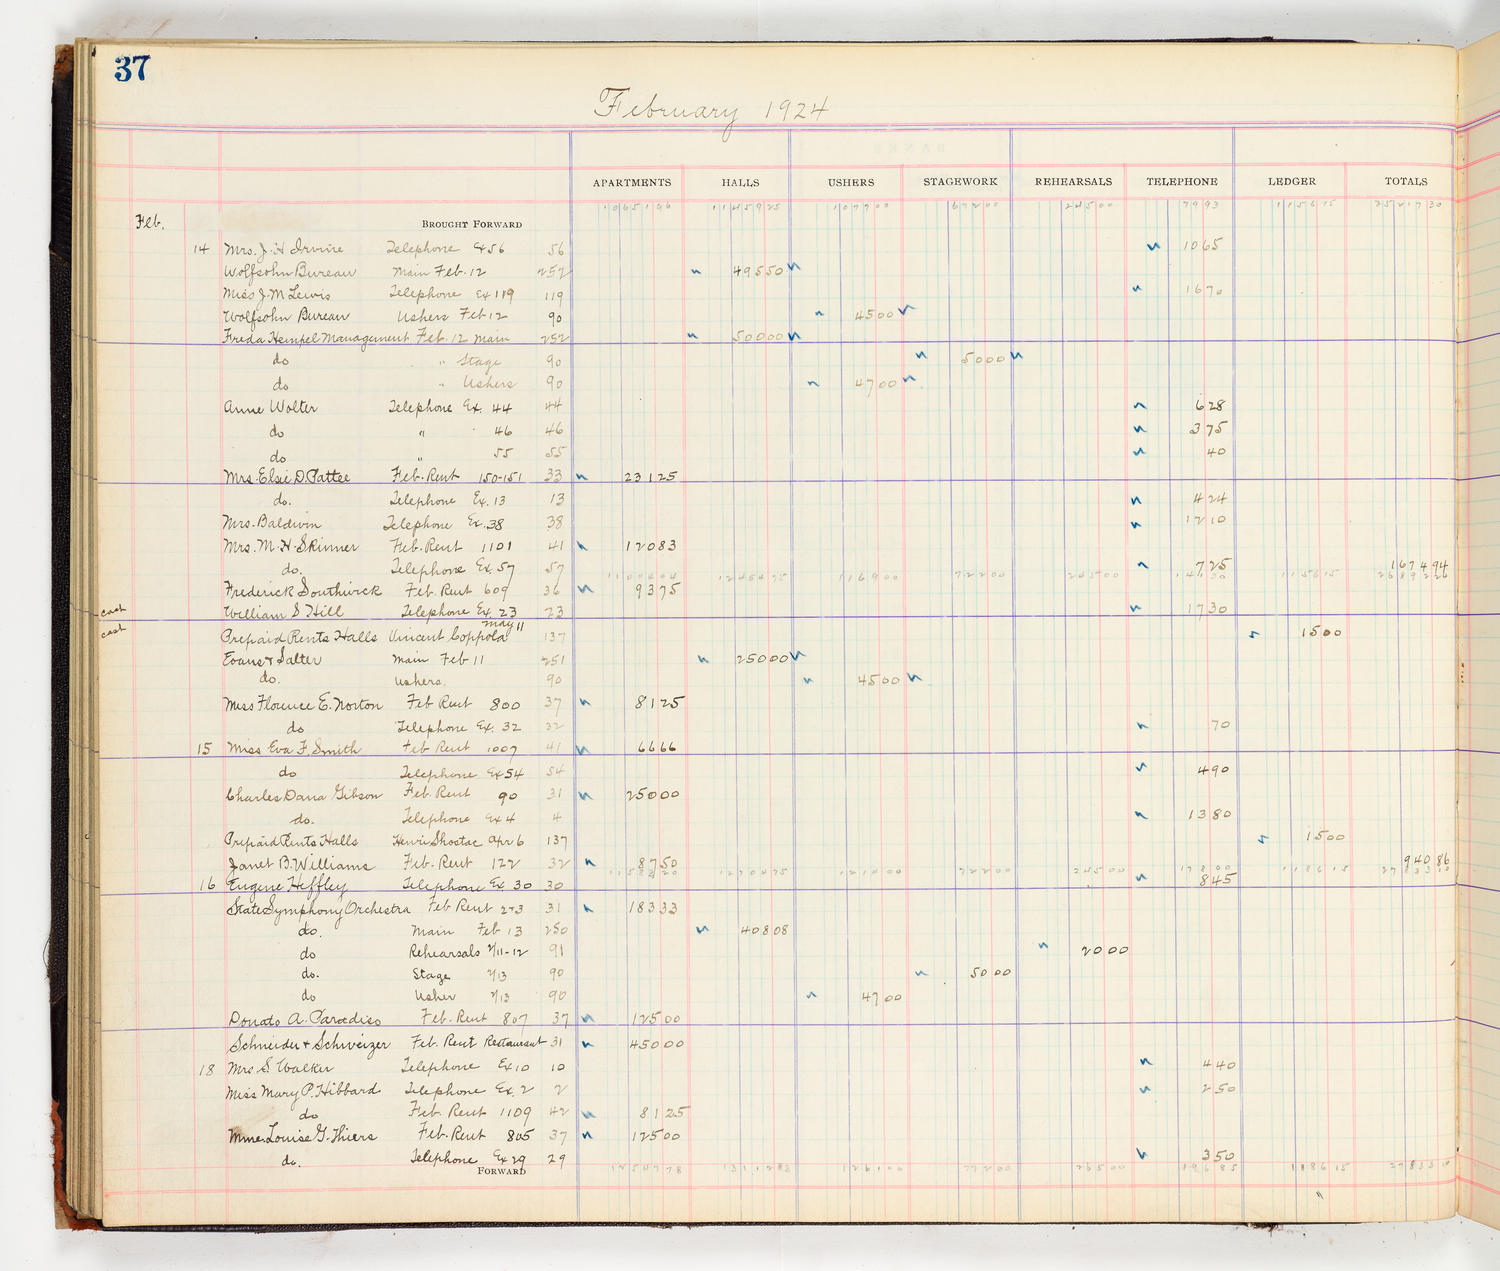 37
February 1924
APARTMENTS HALLS USHERS STAGEWORK REHEARSALS TELEPHONE LEDGER TOTALS
Feb. BROUGHT FORWARD 1065196 1145925 107700 67200 24500 7993 115615
14 Mrs. J. H Irvine Telephone Ex 56 56 1065
Wolfsohn Bureau Main Feb. 12 252 49550
Miss J. M Lewis Telephone Ex 119 119 1670
Wolfsohn Bureau Ushers Feb 12 90 4500
Freda Hempel Management Feb. 12 Main 252 50000
do " Stage 90 5000
do " Ushers 90 4700
Anne Wolter Telephone Ex. 44 44 628
do " 46 46 375
do " 55 55 40
Mrs. Elsie D. Pattee Feb. Rent 150-151 33 23125
do. Telephone Ex. 13 13 424
Mrs. Baldwin Telephone Ex. 38 38 1210
Mrs. M. H. Skinner Feb. Rent 1101 41 12083
do. Telephone Ex. 57 57 725 167494
1100404 1245475 116900 72200 24500 14130 115615 2689224
Frederick Southwick Feb. Rent 609 36 9375
cash William S Hill Telephone Ex. 23 23 1730
cash Prepaid Rents Halls Vincent Coppola May 11 137 1500
Evans & Salter Main Feb 11 251 25000
do. Ushers. 90 4500
Miss Florence E. Norton Feb Rent 800 37 8125
do Telephone Ex. 32 32 70
15 Miss Eva F. Smith Feb Rent 1007 41 6666
do Telephone Ex 54 54 490
Charles Dana Gibson Feb. Rent 90 31 25000
do. Telephone Ex 4 4 1380
Prepaid Rents Halls Henri Shostac Apr 6 137 1500
Janet B. Williams Feb. Rent 122 32 8750 94086
1270475 121400 72200 24500 17800 118615
16 Eugene Heffley Telephone Ex 30 30 845
State Symphony Orchestra Feb Rent 273 31 18333
do. Main Feb 13 250 40808
do Rehearsals 2/11-12 91 2000
do. Stage 2/13 90 5000
do Usher 2/13 90 4700
Donato A. Paradiso Feb. Rent 807 37 12500
Schneider & Schweizer Feb. Rent Restaurant 31 45000
18 Mrs S. Walker Telephone Ex 10 10 440
Miss Mary P. Hibbard Telephone Ex. 2 2 250
do Feb. Rent 1109 42 8125
Mme. Louise G. Thiers Feb. Rent 805 37 12500
do. Telephone Ex 29 29 350
FORWARD 1254778 1311283 126100 77200 26500 19685 118615